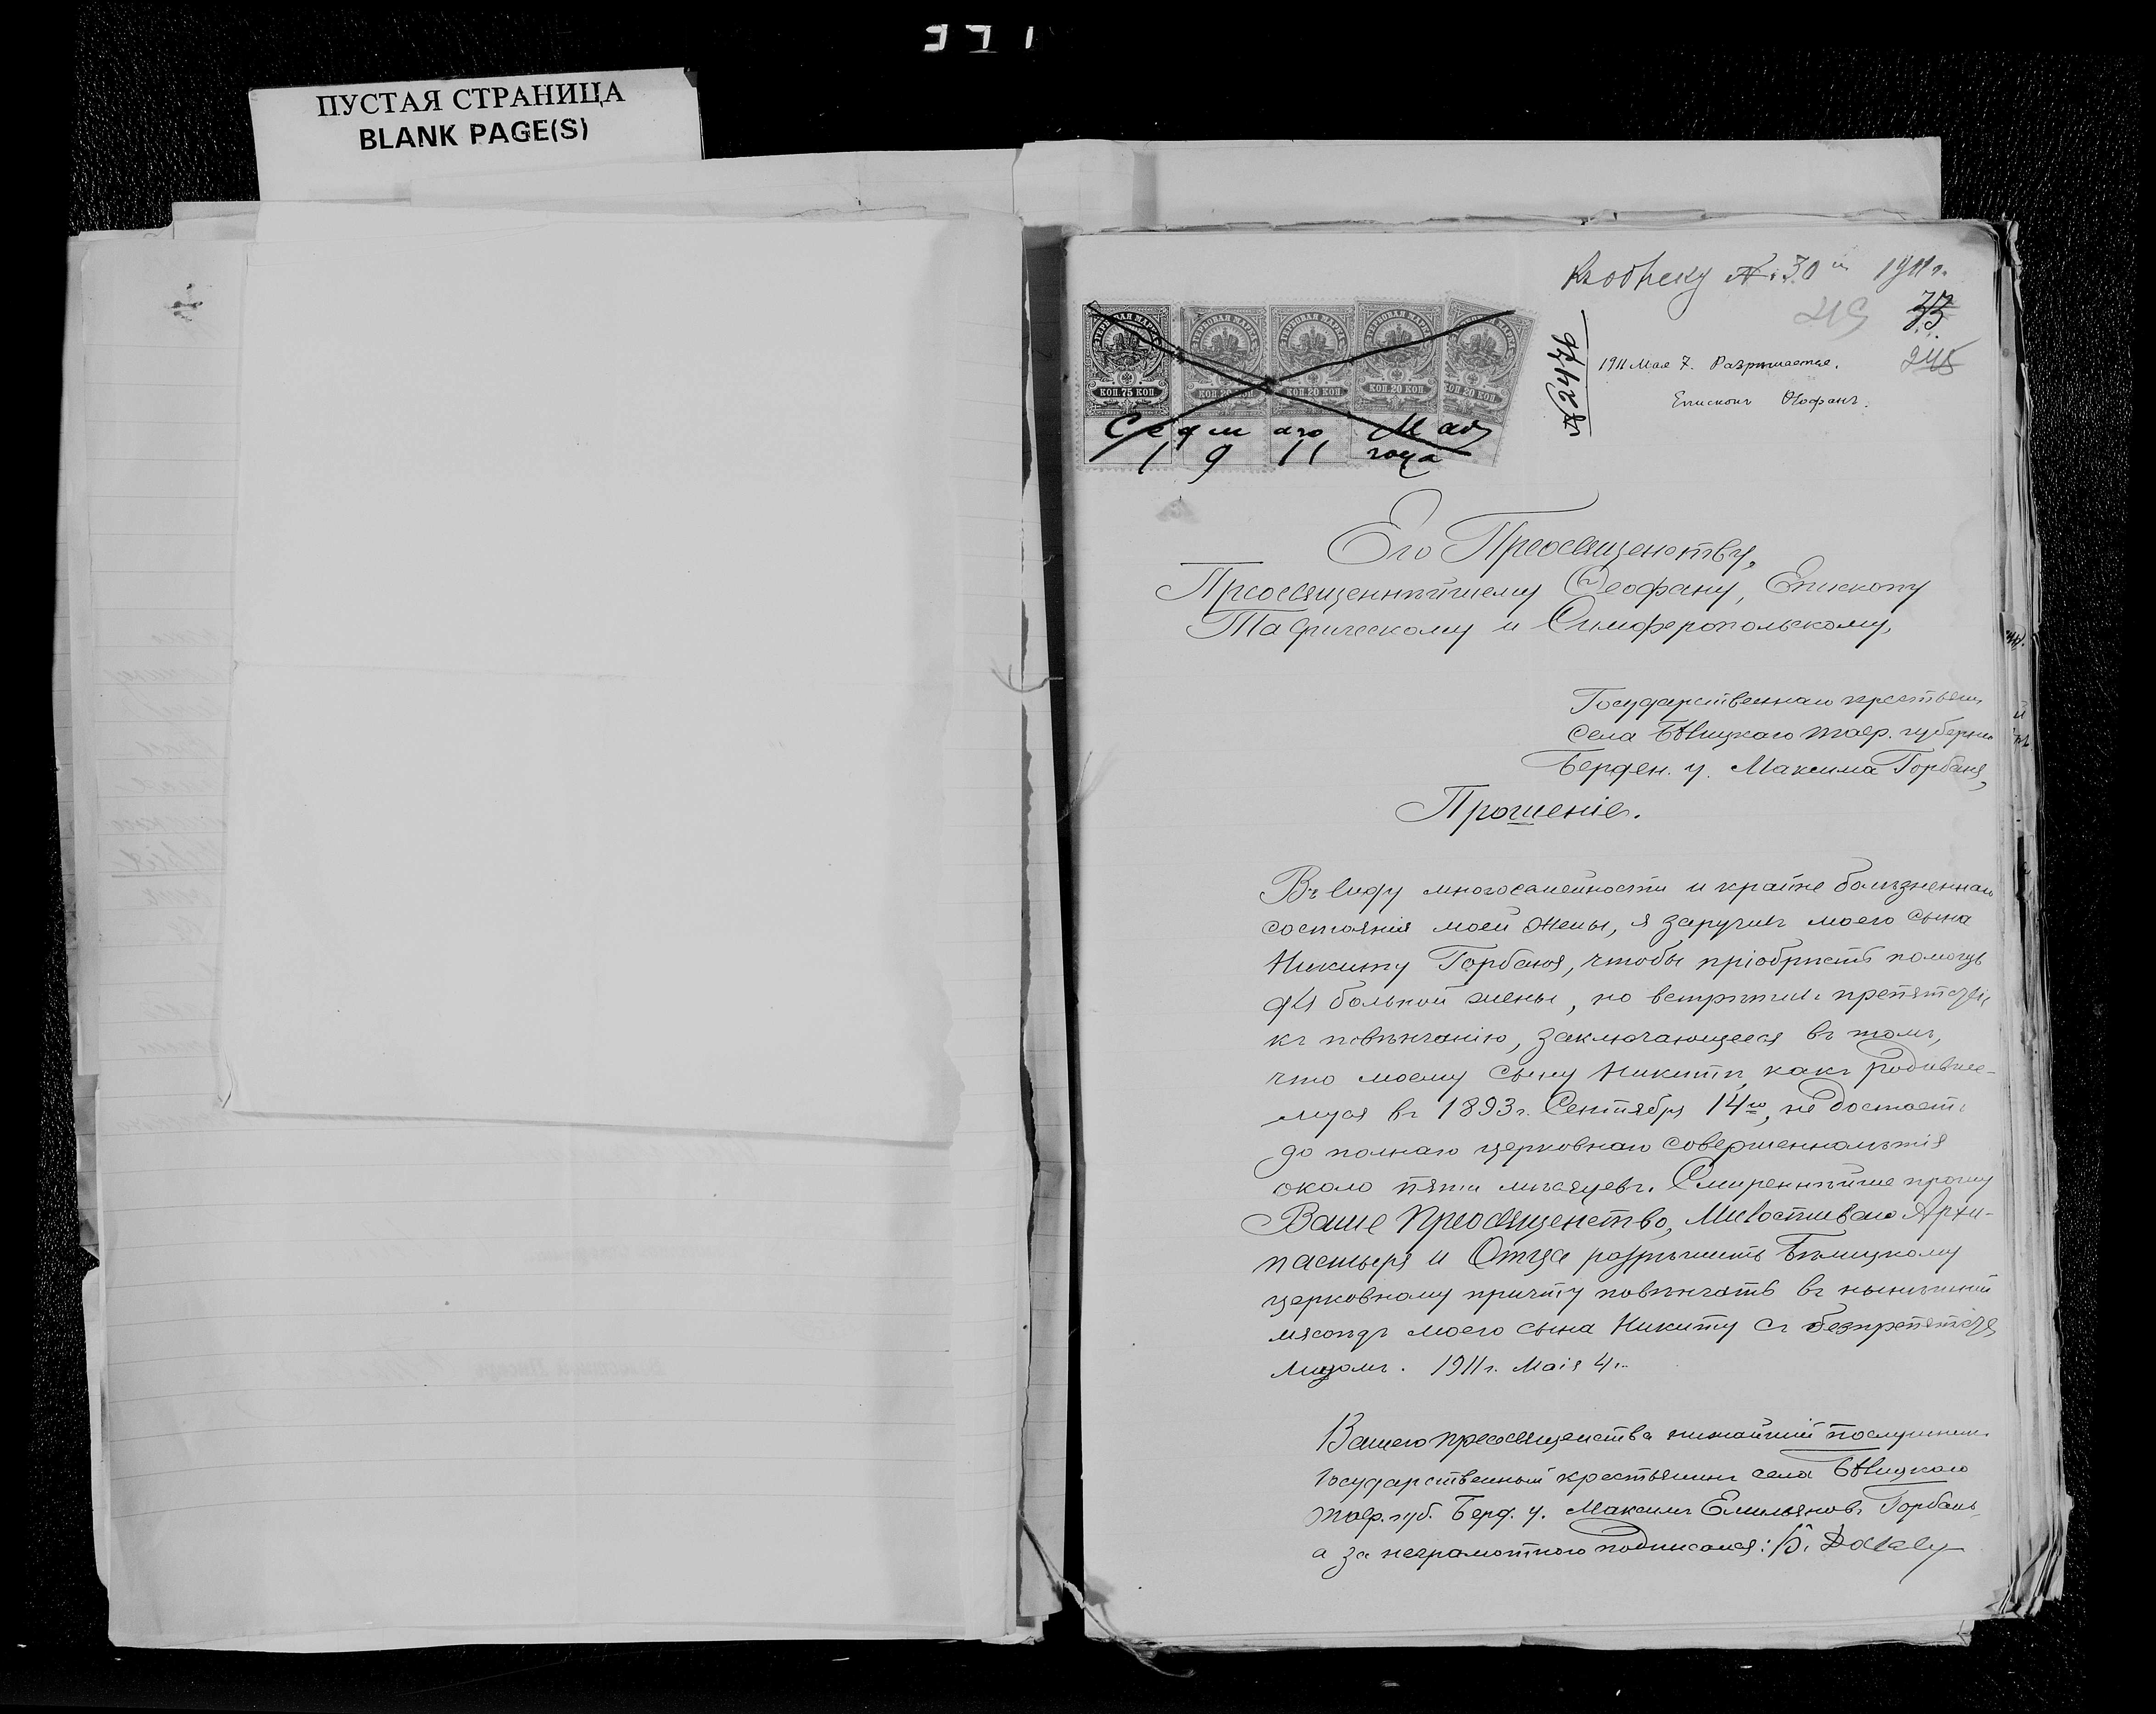 ПУСТАЯ СТРАНИЦА
BLANK PAGE(S)
№ 30 1911 г.
73
245
№ 2476
1911 Мая 7. Разрѣшается.
Епископъ Ѳеофанъ.
ГЕРБОВАЯ МАРКА
КОП. 75 КОП
ГЕРБОВАЯ МАРКА
КОП. 20 КОП
ГЕРБОВАЯ МАРКА
КОП. 20 КОП
ГЕРБОВАЯ МАРКА
КОП. 20 КОП
КОП 20 КОП
Седмаго Мая
1911 года
Его Преосвященству,
Преосвященнѣйшему Ѳеофану, Епископу
Таврическому и Симферопольскому,
Государственнаго крестьян.
села Бѣлицкаго Тавр. губерніи
Бердян. у. Максима Горбаня,
Прошеніе.
Въ виду многосемейности и крайне болѣзненнаго
состоянія моей жены, я заручилъ моего сына
Никиту Горбаня, чтобы пріобрѣсть помощь
для больной жены, но встрѣтилъ препятствіе
къ повѣнчанію, заключающееся въ томъ,
что моему сыну Никитѣ, какъ родивше-
муся въ 1893 г. Сентября 14го, не достаетъ
до полнаго церковнаго совершеннолѣтія
около пяти мѣсяцевъ. Смиреннѣйше прошу
Ваше Преосвященство, Милостиваго Архи-
пастыря и Отца разрѣшить Бѣлицкому
церковному причту повѣнчать въ нынѣшній
мясоѣдъ моего сына Никиту съ безпрепятств.
лицомъ. 1911 г. Маія 4 г.
Вашего Преосвященства нижайшій послушникъ
Государственный крестьянинъ села Бѣлицкаго
Тавр. губ. Берд. у. Максимъ Емельяновъ Горбань,
а за неграмотного подписался: